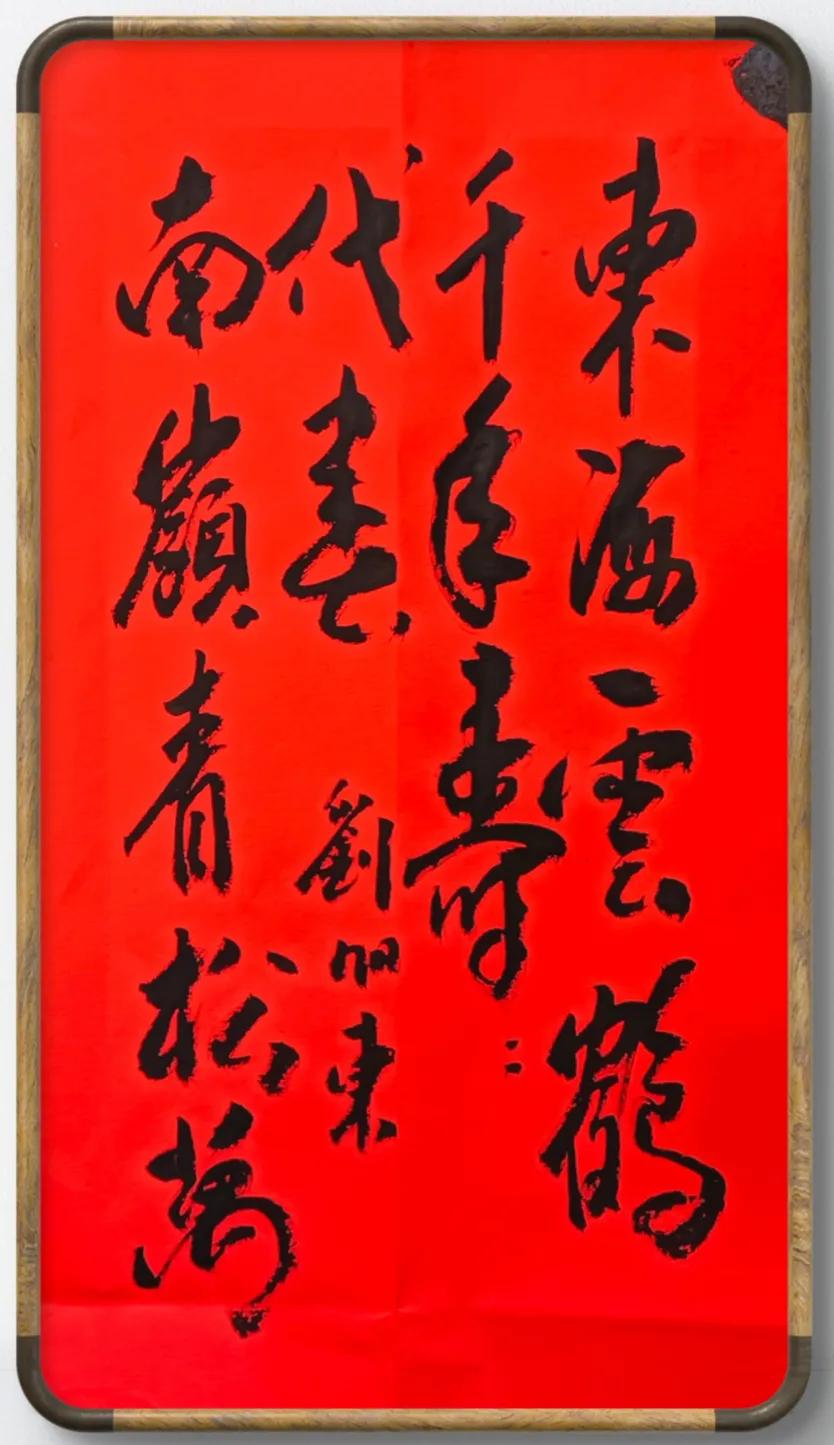 東海雲鶴
千年壽
南嶺青松萬
代春
劉東